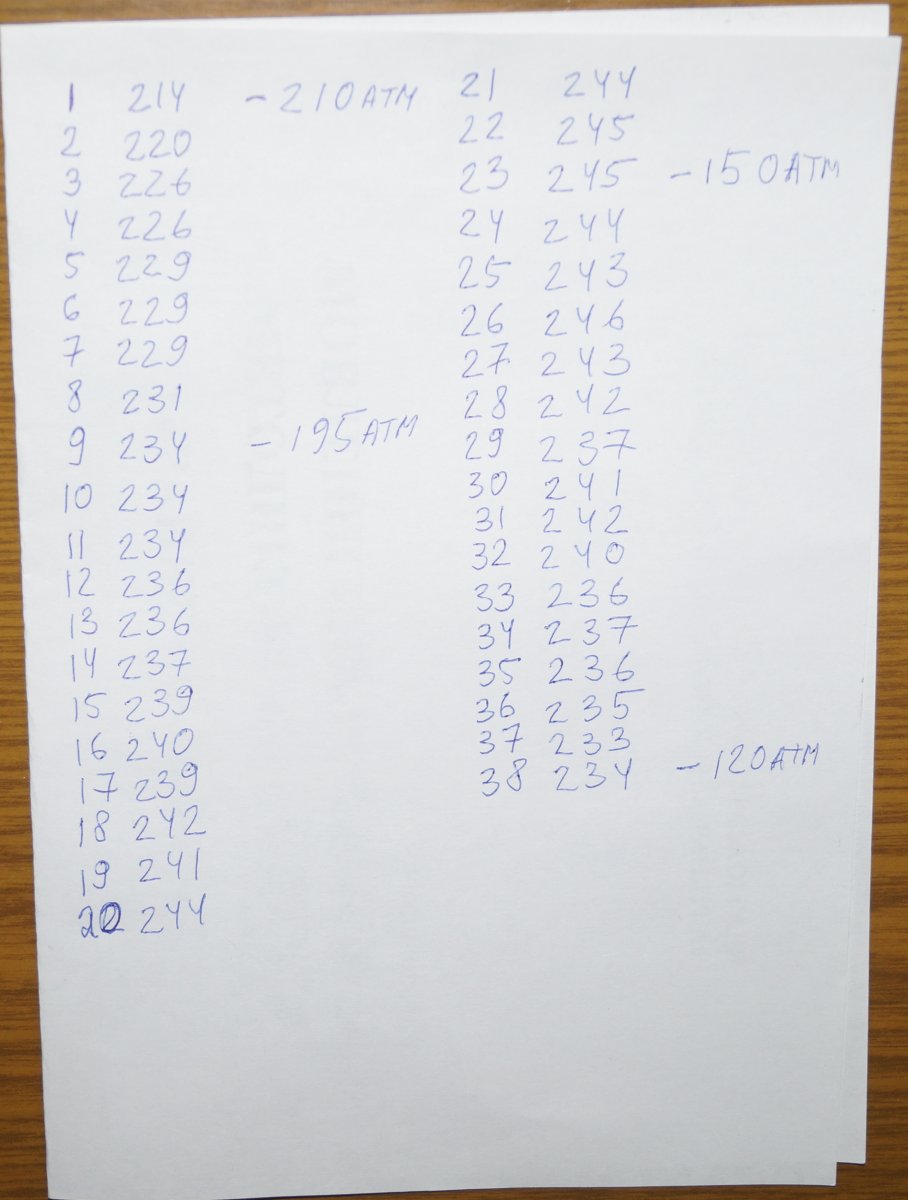 1 214 - 210 АТМ
2 220
3 226
4 226
5 229
6 229
7 229
8 231
9 234 - 195 АТМ
10 234
11 234
12 236
13 236
14 237
15 239
16 240
17 239
18 242
19 241
20 244
21 244
22 245
23 245 - 150 АТМ
24 244
25 243
26 246
27 243
28 242
29 237
30 241
31 242
32 240
33 236
34 237
35 236
36 235
37 233
38 234 - 120 АТМ